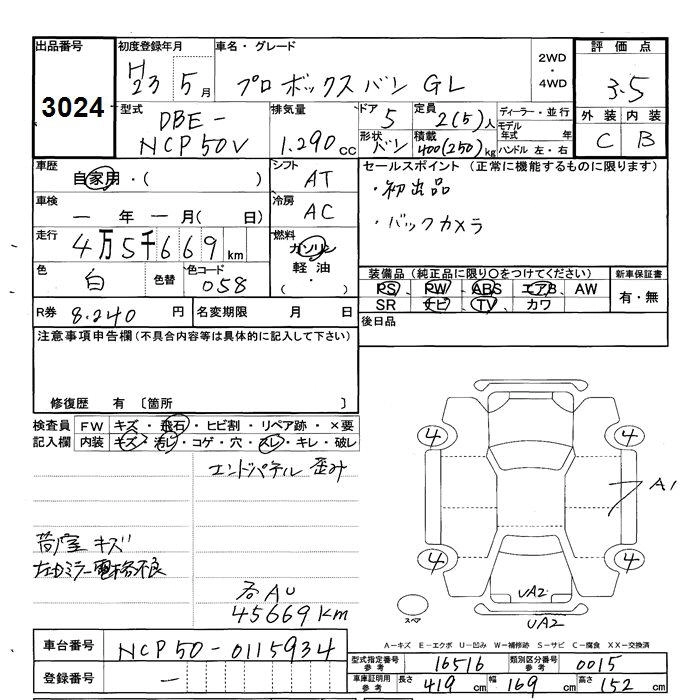 出品番号 初度登録年月 車名・グレード 2WD・4WD 評価点
3024 H23 5月 プロボックスバン GL 3.5
型式 DBE-NCP50V 排気量 1.290cc ドア 5 定員 2(5)人 ディーラー・並行
形状 バン 積載 400(250)kg モデル年式 年式 ハンドル 左・右
外装 内装
C B
車歴 自家用・( ) シフト AT
セールスポイント(正常に機能するものに限ります)
・初出品
・バックカメラ
車検 ー年ー月( 日) 冷房 AC
走行 4万5千669km 燃料 ガソリン 軽油 ( ・ )
色 白 色替 色コード 058
装備品(純正品に限り○をつけてください) 新車保証書
PS、PW、ABS、エアB、AW 有・無
SR ナビ TV カワ
R券 8.240円 名変期限 月 日
後日品
注意事項申告欄(不具合内容等は具体的に記入して下さい)
修復歴 有 〔箇所 〕
検査員 FW キズ・飛石・ヒビ割・リペア跡・×要
記入欄 内装 キズ・汚れ・コゲ・穴・スレ・キレ・破レ
エンドパネル 歪み
荷室 キズ
左ドミラー電格不良
45669km
4 4
A1
4 4
UA2
スペア
UA2
A−キズ E−エクボ U−凹み W−補修跡 S−サビ C−腐食 XX−交換済
車台番号 NCP50-0115934
型式指定番号 参考 16516 類別区分番号 参考 0015
登録番号 ー
車庫証明用 参考 長さ 419cm 幅 169cm 高さ 152cm